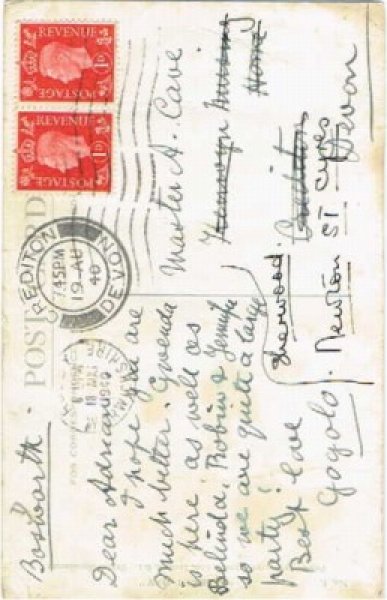 REVENUE
1D 1D
POSTAGE
REVENUE
1D 1D
POSTAGE
CREDITON
7.45PM
19 AU
40
DEVON
POST
FOR CORRES
Bosworth.
Dear Adrian
I hope you are
much better. Gwenda
is here as well as
Belinda, Robin & Jennifer
so we are quite a large
party!
Best love
Gogolo.
Master A. Cave
Nursing
Home
Crediton
Sherwood.
Newton St Cyres
Devon